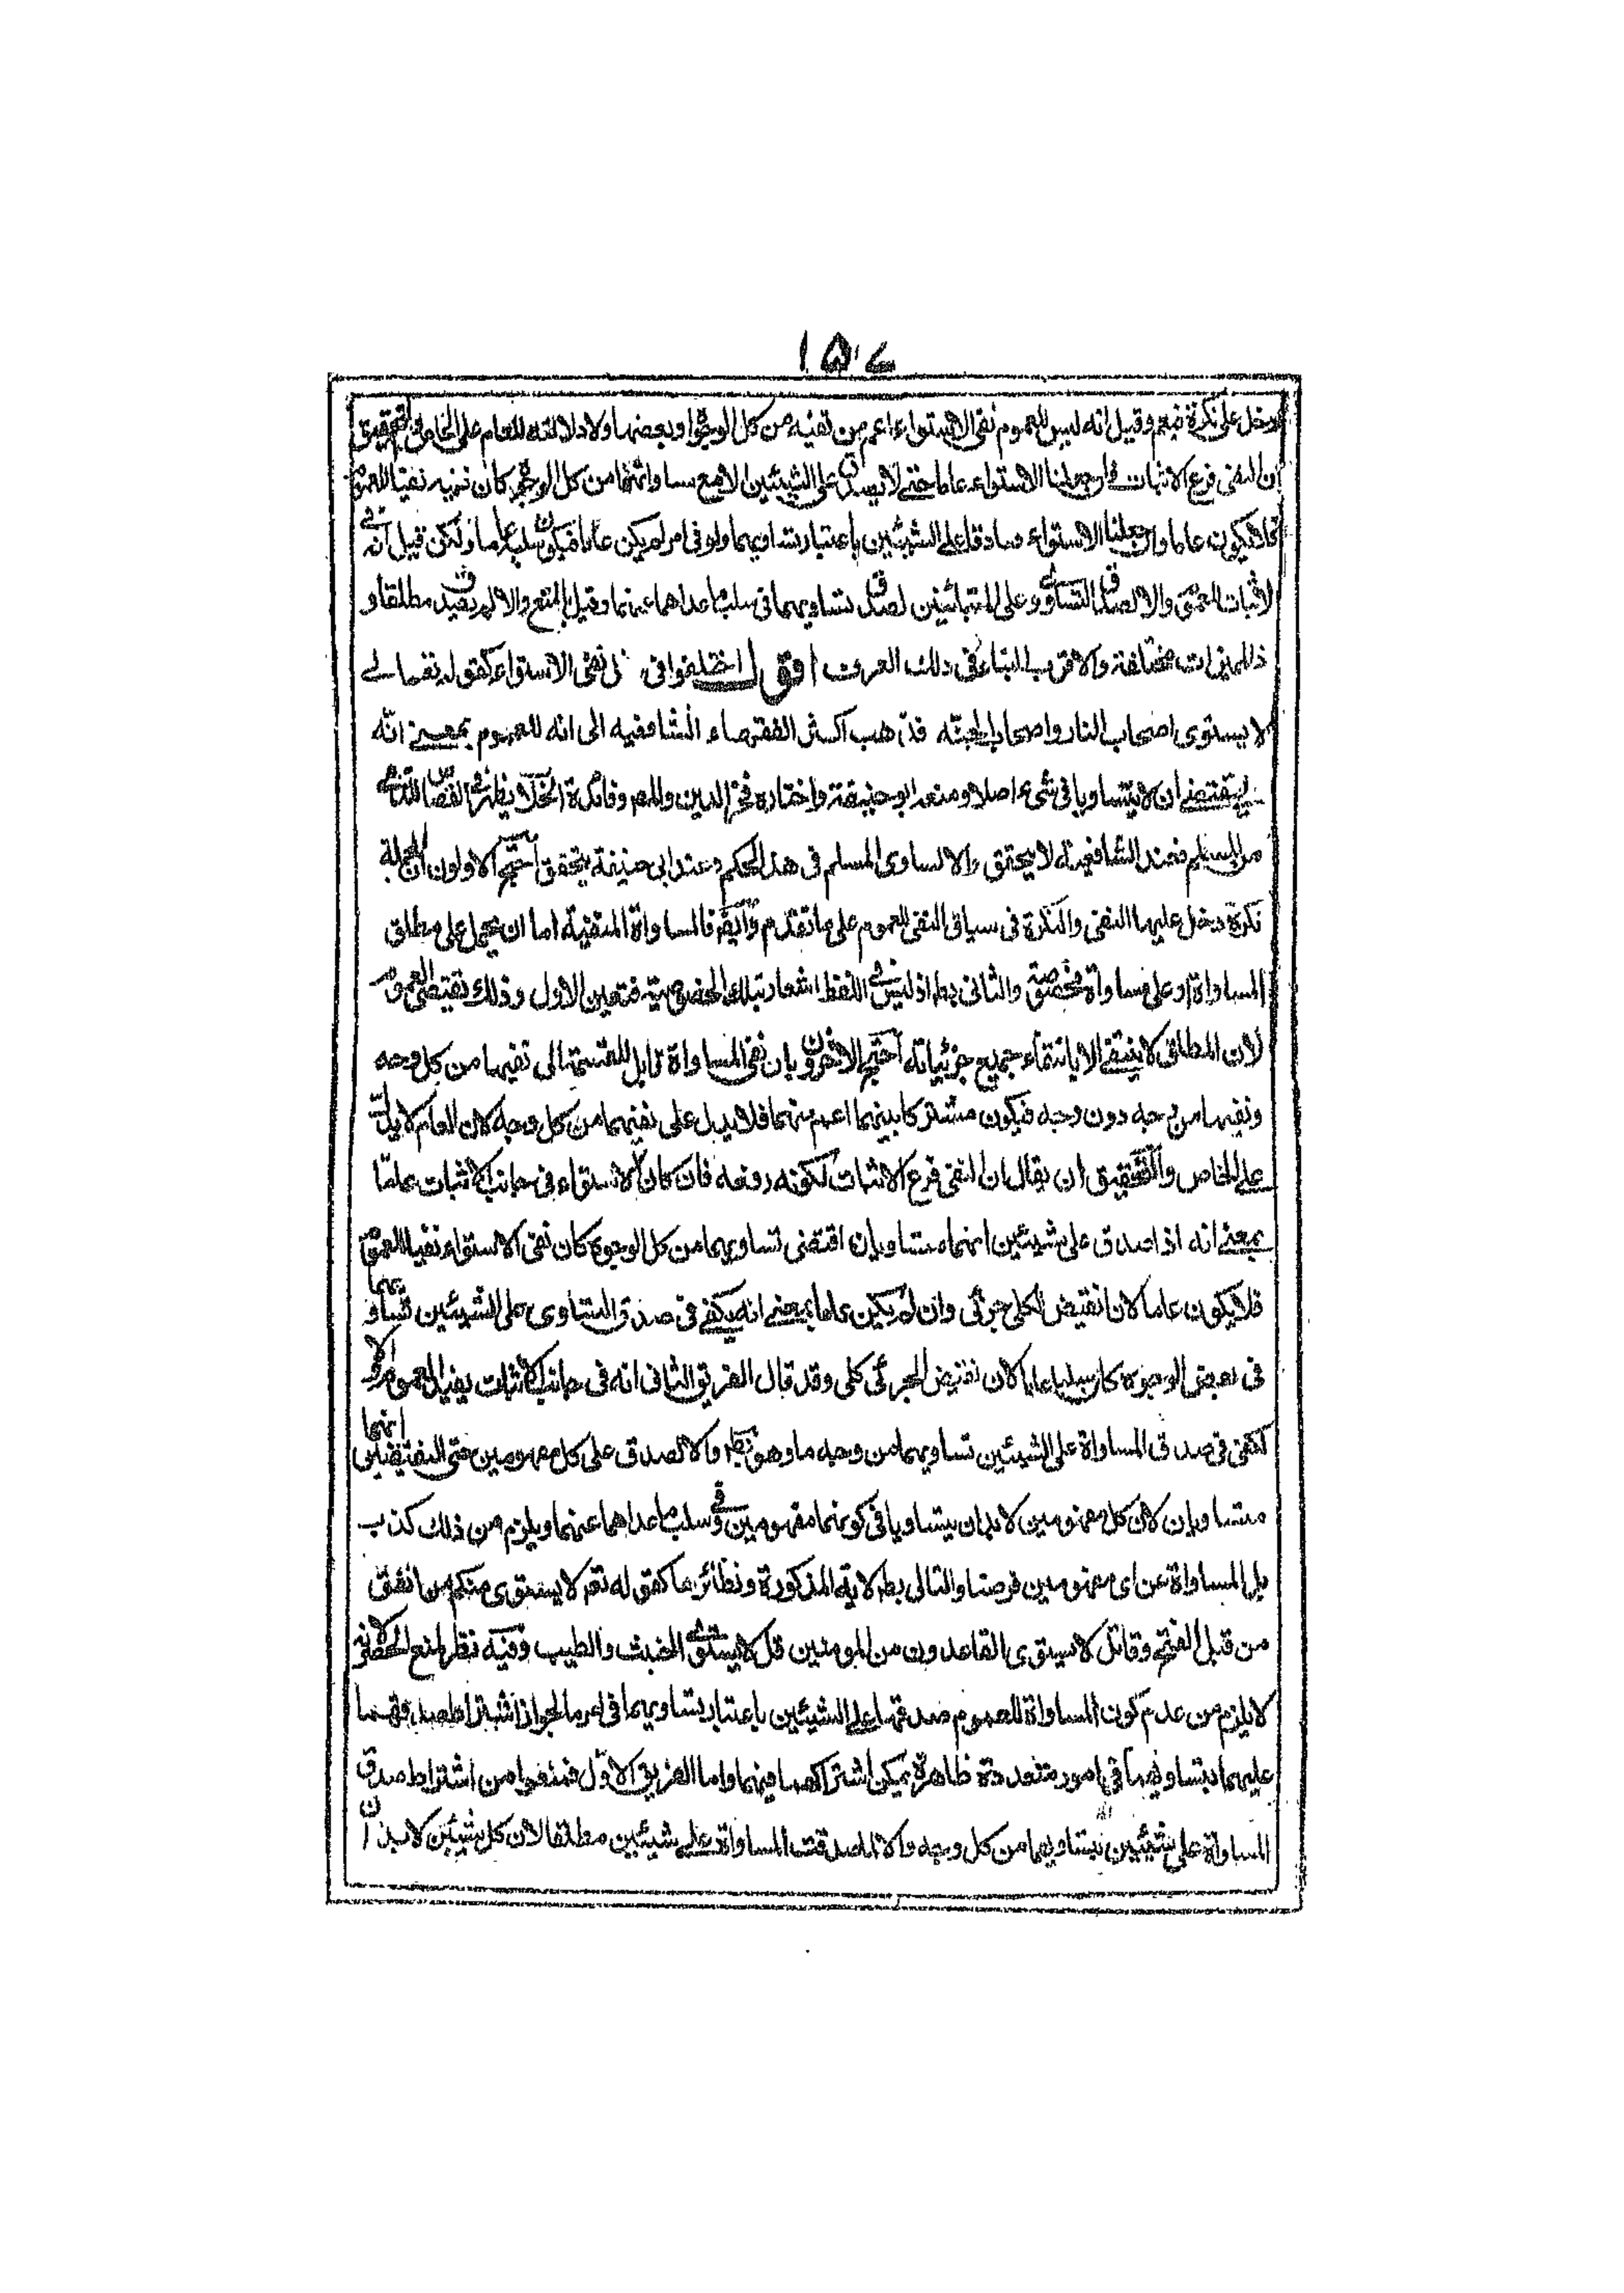 ١٥٧
دخل على نكرة فيعم وقيل انه ليس للعموم نفى الاستواء اعم من نفيه من كل الوجوه او بعضها ولا دلالة للعام على الخاص والتحقيق
ان النفى فرع الاثبات فان جعلنا الاستواء عاما حتى لا يصدق على الشيئين الا مع مساواتهما من كل الوجوه كان نفيه نفيا للعموم
فلا يكون عاما وان جعلنا الاستواء صادقا على الشيئين باعتبار تساويهما ولو فى امر لم يكن عاما فيكون سلبه عاما ولكن قيل انه فى
الاثبات للعموم والا لصدق التساوى على المتباينين لصدق تساويهما فى سلب ما عداهما عنهما وقيل بالمنع والا لم يصدق مطلقا و
ذلك ميزات مختلفة والاقرب البناء فى ذلك العرف اقول اختلفوا فى ان نفى الاستواء كقوله تعالى
لا يستوى اصحاب النار واصحاب الجنة فذهب اكثر الفقهاء الشافعيه الى انه للعموم بمعنى انه
يقتضى ان لا يتساويا فى شىء اصلا ومنعه ابو حنيفة واختاره فخر الدين والمص وفائدة الخلاف يظهر فى القصاص للذمى
من المسلم فعند الشافعية لا يتحقق والا لساوى المسلم فى هذا الحكم وعند ابى حنيفة يتحقق احتج الاولون ان الجملة
نكرة دخل عليها النفى والنكرة فى سياق النفى للعموم على ما تقدم وايضا فالمساواة المنفية اما ان يحمل على مطلق
المساواة او على مساواة مخصصة والثانى بط اذ ليس فى اللفظ اشعار بتلك الخصوصية فتعين الاول وذلك يقتضى العموم
لان المطلق لا ينتفى الا بانتفاء جميع جزئياته احتج الاخرون بان نفى المساواة قابل للقسمة الى نفيها من كل وجه
ونفيها من وجه دون وجه فيكون مشتركا بينهما اعم منهما فلا يدل على نفيهما من كل وجه لان العام لا يدل
على الخاص والتحقيق ان يقال ان النفى فرع الاثبات لكونه رفعه فان كان الاستواء فى جانب الاثبات عاما
بمعنى انه اذا صدق على شيئين انهما متساويان اقتضى تساويهما من كل الوجوه كان نفى الاستواء نفيا للعموم
فلا يكون عاما لان نقيض الكلى جزئى وان لم يكن عاما بمعنى انه يكفى فى صدق التساوى على الشيئين تساويهما
فى بعض الوجوه كان سلبا عاما لان نقيض الجزئى كلى وقد قال الفريق الثانى انه فى جانب الاثبات يفيد العموم والا
لكفى فى صدق المساواة على الشيئين تساويهما من وجه ما وهو بط والا لصدق على كل مفهومين حتى النقيضين انهما
متساويان لان كل مفهومين لا بد ان يتساويا فى كونهما مفهومين وفى سلب ما عداهما عنهما ويلزم من ذلك كذب
سلب المساواة عن اى مفهومين فرضا والتالى بط للاية المذكورة ونظائرها كقوله تع لا يستوى منكم من انفق
من قبل الفتح وقاتل لا يستوى القاعدون من المومنين قل لا يستوى الخبيث والطيب وفيه نظر لمنع الحصر لانه
لا يلزم من عدم كون المساواة للعموم صدقها على الشيئين باعتبار تساويهما فى امر ما لجواز اشتراط صدقها
عليهما بتساويهما فى امور متعددة ظاهرة يمكن اشتراكهما فيهما واما الفريق الاول فمنعوا من اشتراط صدق
المساواة على شيئين بتساويهما من كل وجه والا لما صدقت المساواة على شيئين مطلقا لان كل شيئين لا بد ان